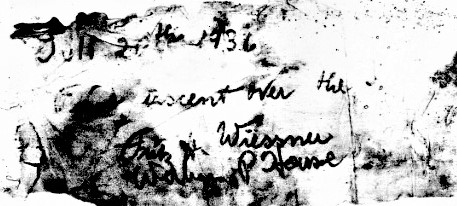 July 1936
ascent over the
Fritz Wiessner
P House